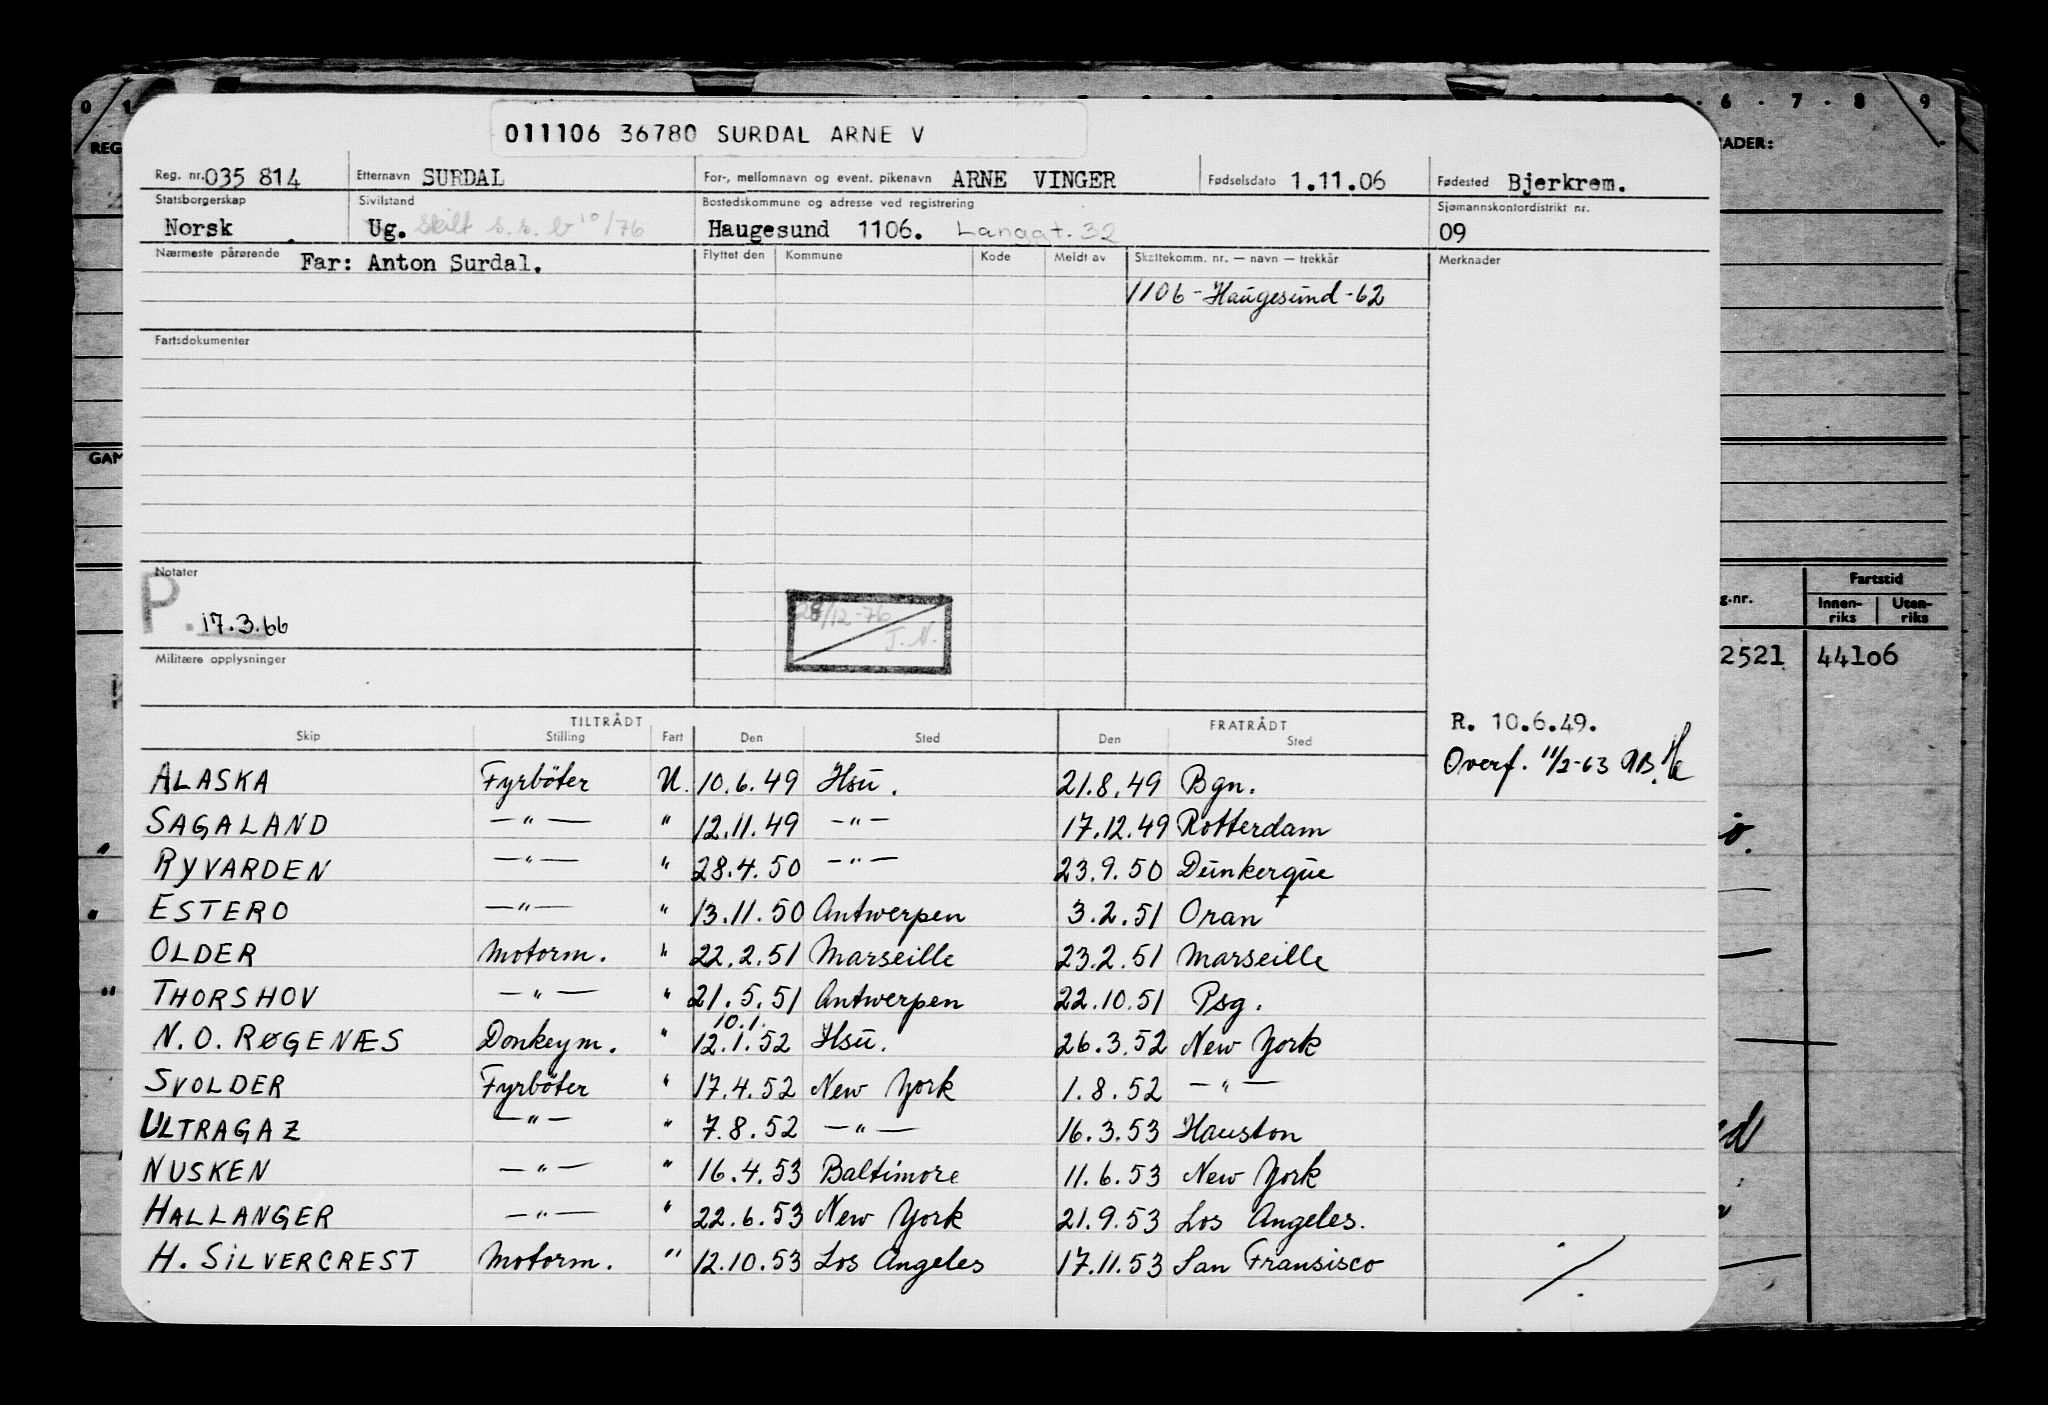 011106 36780 SURDAL ARNE V
Reg. nr. 035 814 Etternavn SURDAL For-, mellomnavn og event. pikenavn ARNE VINGER Fødselsdato 1.11.06 Fødested Bjerkrem.
Statsborgerskap Sivilstand Bostedskommune og adresse ved registrering Sjømannskontordistrikt nr.
Norsk Ug. Skilt s.s. b 10/76 Haugesund 1106. Langgt. 32 09
Nærmeste pårørende Far: Anton Surdal. Flyttet den Kommune Kode Meldt av Skattekomm. nr. — navn — trekkår Merknader
1106 - Haugesund - 62
Fartsdokumenter
Notater
P. 17.3.66
28/12-76 J.N.
Militære opplysninger
TILTRÅDT FRATRÅDT R. 10.6.49.
Skip Stilling Fart Den Sted Den Sted
Overf. 11/2-63
ALASKA Fyrböter U. 10.6.49 Hsu. 21.8.49 Bgn.
SAGALAND —"— " 12.11.49 —"— 17.12.49 Rotterdam
RYVARDEN —"— " 28.4.50 —"— 23.9.50 Dunkerque
ESTERO —"— " 13.11.50 Antwerpen 3.2.51 Oran
OLDER Motorm. " 22.2.51 Marseille 23.2.51 Marseille
THORSHOV —"— " 21.5.51 Antwerpen 22.10.51 Psg.
10.1.
N.O. RØGENÆS Donkeym. " 12.1.52 Hsu. 26.3.52 New York
SVOLDER Fyrböter " 17.4.52 New York 1.8.52 —"—
ULTRAGAZ —"— " 7.8.52 —"— 16.3.53 Hauston
NUSKEN —"— " 16.4.53 Baltimore 11.6.53 New York
HALLANGER —"— " 22.6.53 New York 21.9.53 Los Angeles.
H. SILVERCREST Motorm. " 12.10.53 Los Angeles 17.11.53 San Fransisco
./.
0 1
6 . 7 . 8 9
REG
ADER:
GAM
g.nr. Fartstid
Innen-riks Uten-riks
2521 44106